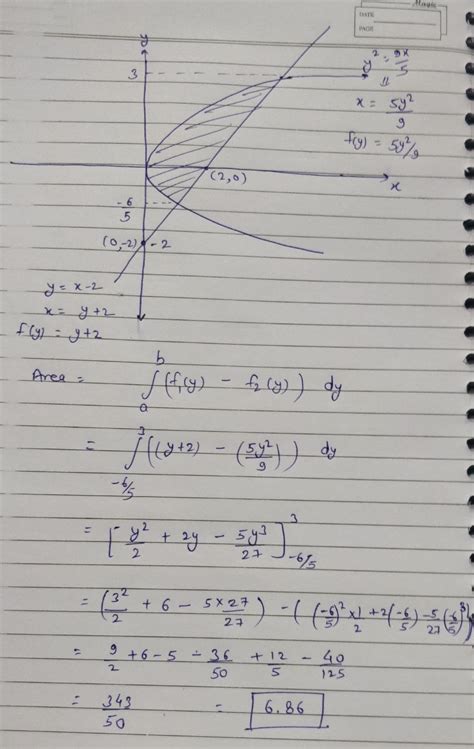 Magic
DATE
PAGE
y
3
y² = 9x/5
⇓
x = 5y²/9
f(y) = 5y²/9
(2,0)
x
-6/5
(0,-2) -2
y = x-2
x = y+2
f(y) = y+2
Area = ∫ₐᵇ (f₁(y) - f₂(y)) dy
= ∫_{-6/5}^{3} ((y+2) - (5y²/9)) dy
= [y²/2 + 2y - 5y³/27]_{-6/5}^{3}
= (3²/2 + 6 - 5×27/27) - ((-6/5)² × 1/2 + 2(-6/5) - 5/27(-6/5)³)
= 9/2 + 6 - 5 - 36/50 + 12/5 - 40/125
= 343/50 = 6.86